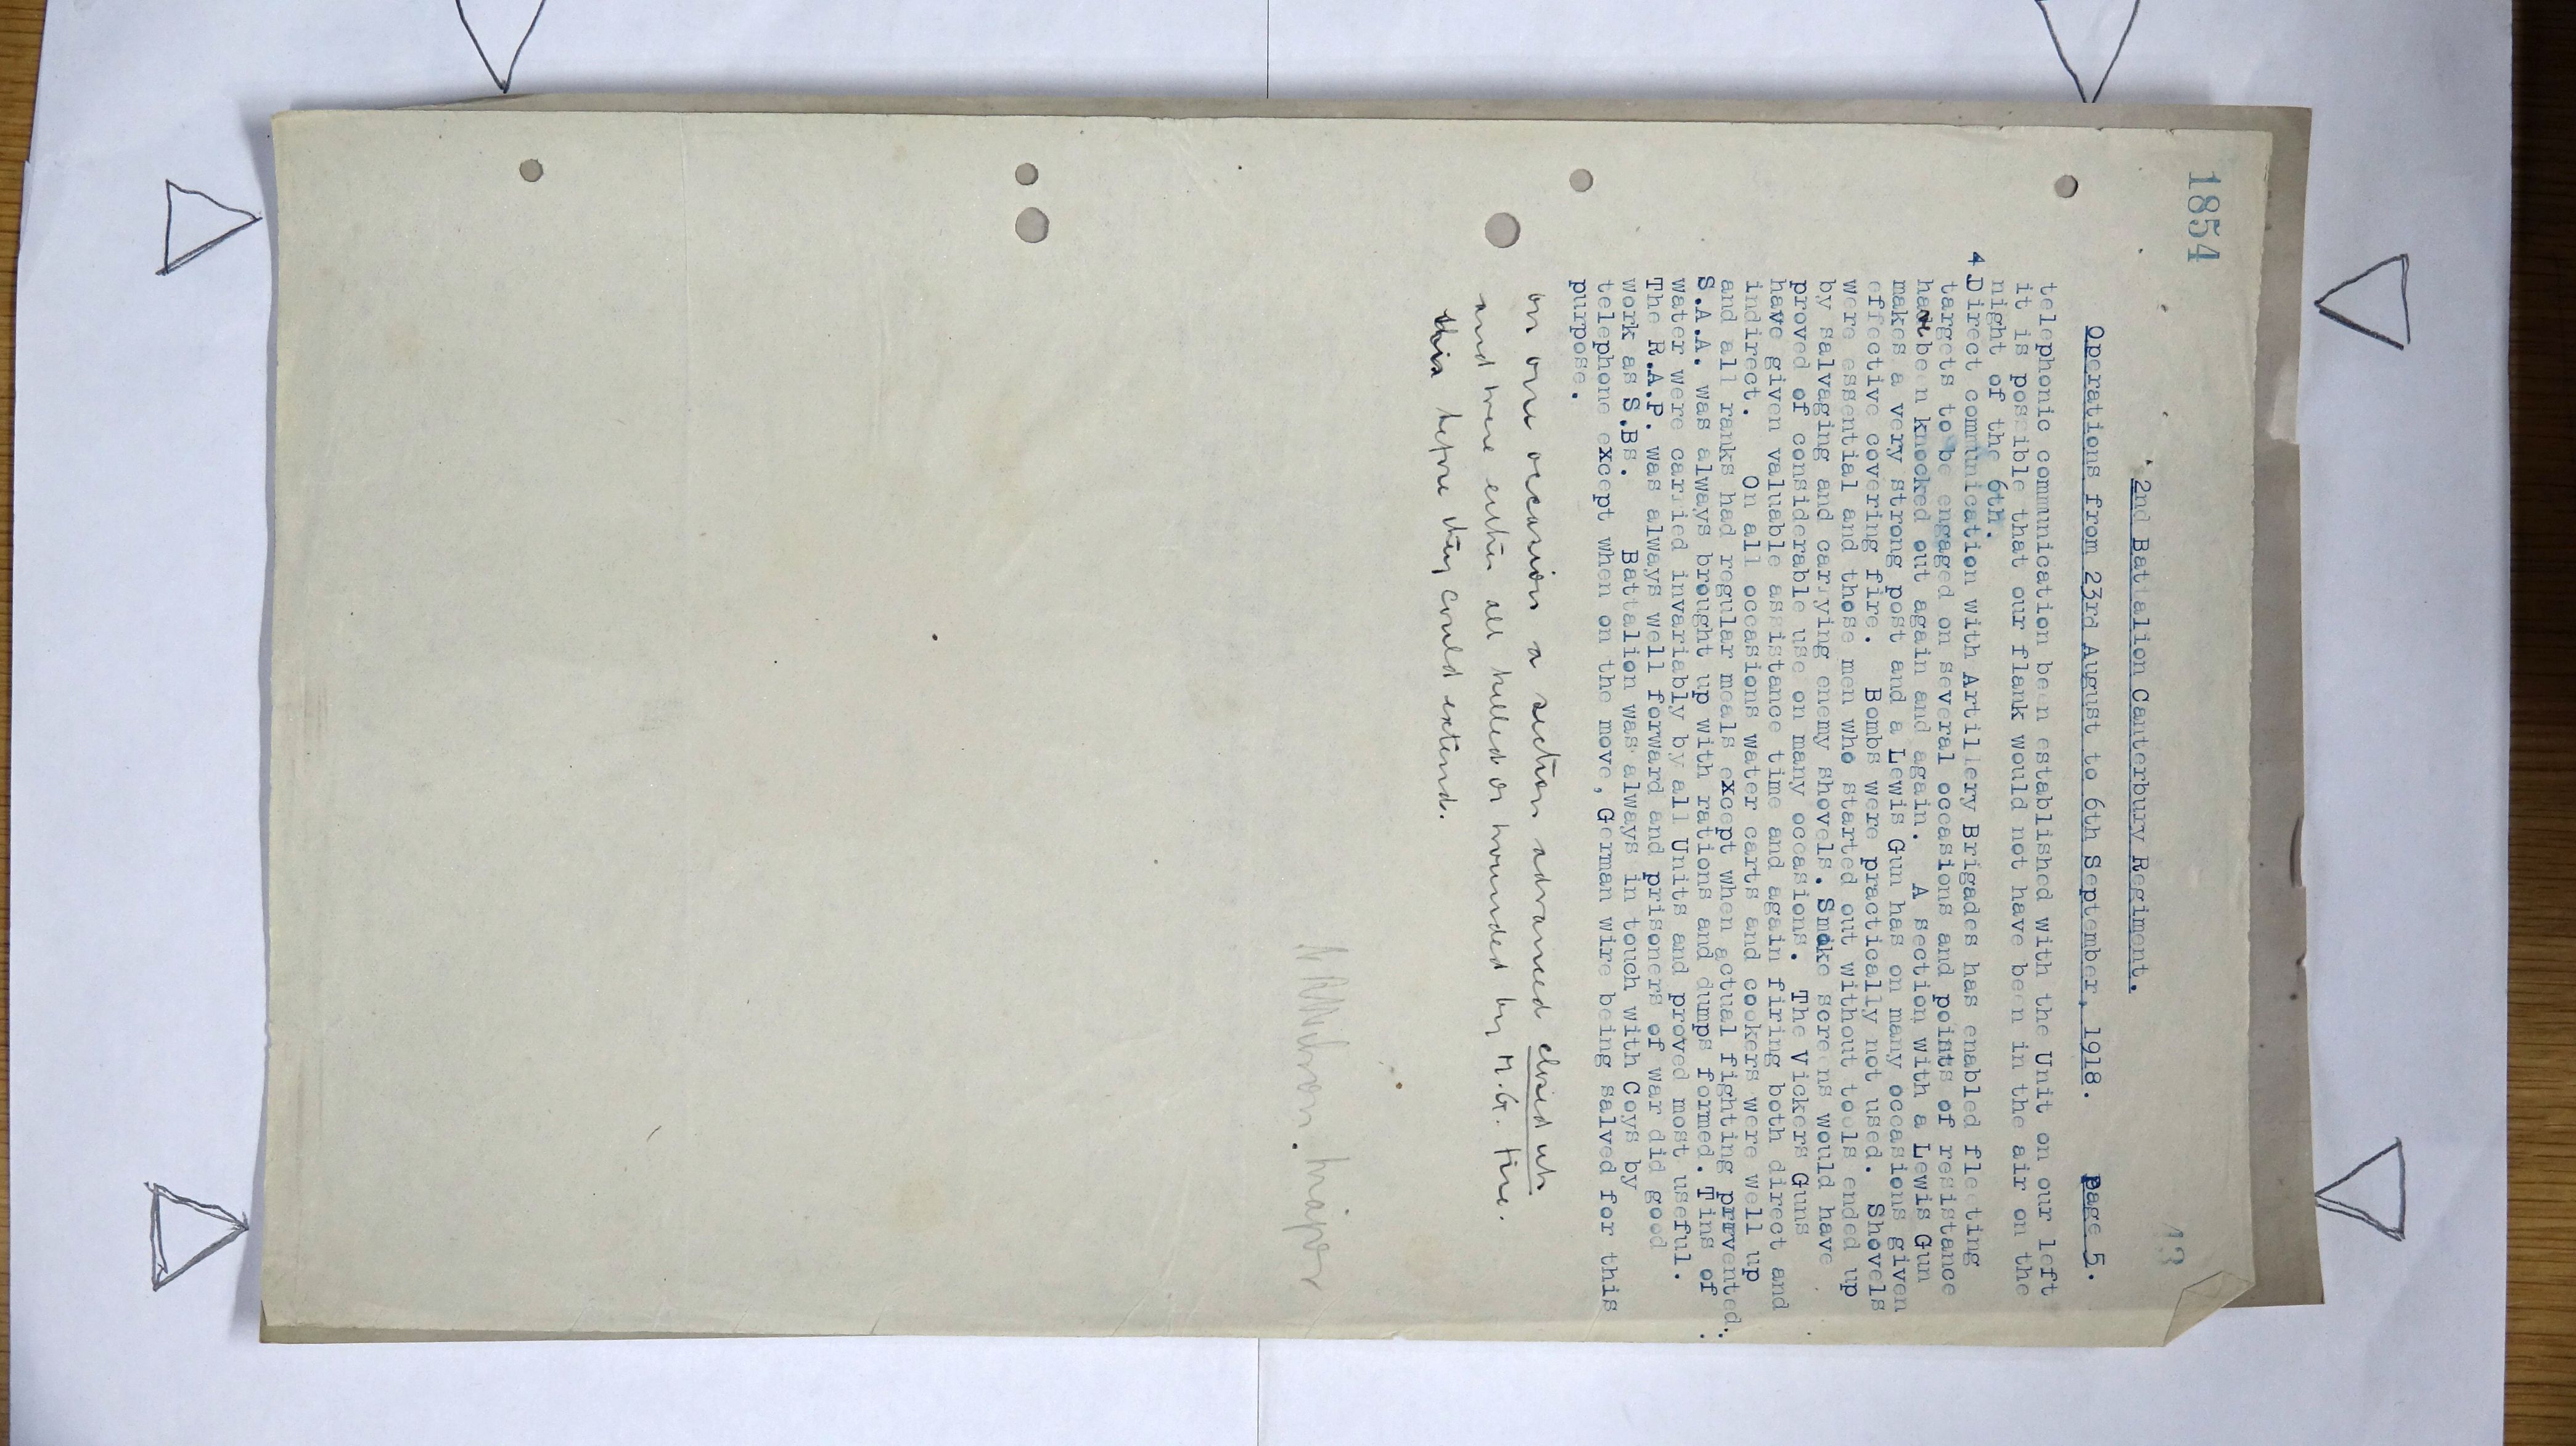 1854
13
2nd Battalion Canterbury Regiment.
Operations from 23rd August to 6th September, 1918. Page 5.
telephonic communication been established with the Unit on our left
it is possible that our flank would not have been in the air on the
night of the 6th.
4 Direct communication with Artillery Brigades has enabled fleeting
targets to be engaged on several occasions and points of resistance
have been knocked out again and again. A section with a Lewis Gun
makes a very strong post and a Lewis Gun has on many occasions given
effective covering fire. Bombs were practically not used. Shovels
were essential and those men who started out without tools ended up
by salvaging and carrying enemy shovels. Smoke screens would have
proved of considerable use on many occasions. The Vickers Guns
have given valuable assistance time and again firing both direct and
indirect. On all occasions water carts and cookers were well up
and all ranks had regular meals except when actual fighting prrvented.
S.A.A. was always brought up with rations and dumps formed. Tins of
water were carried invariably by all Units and proved most useful.
The R.A.P. was always well forward and prisoners of war did good
work as S.Bs. Battalion was always in touch with Coys by
telephone except when on the move, German wire being salved for this
purpose.
on one occasion a section advanced closed up
and were either all killed or wounded by M.G. fire.
this before they could extend.
Major